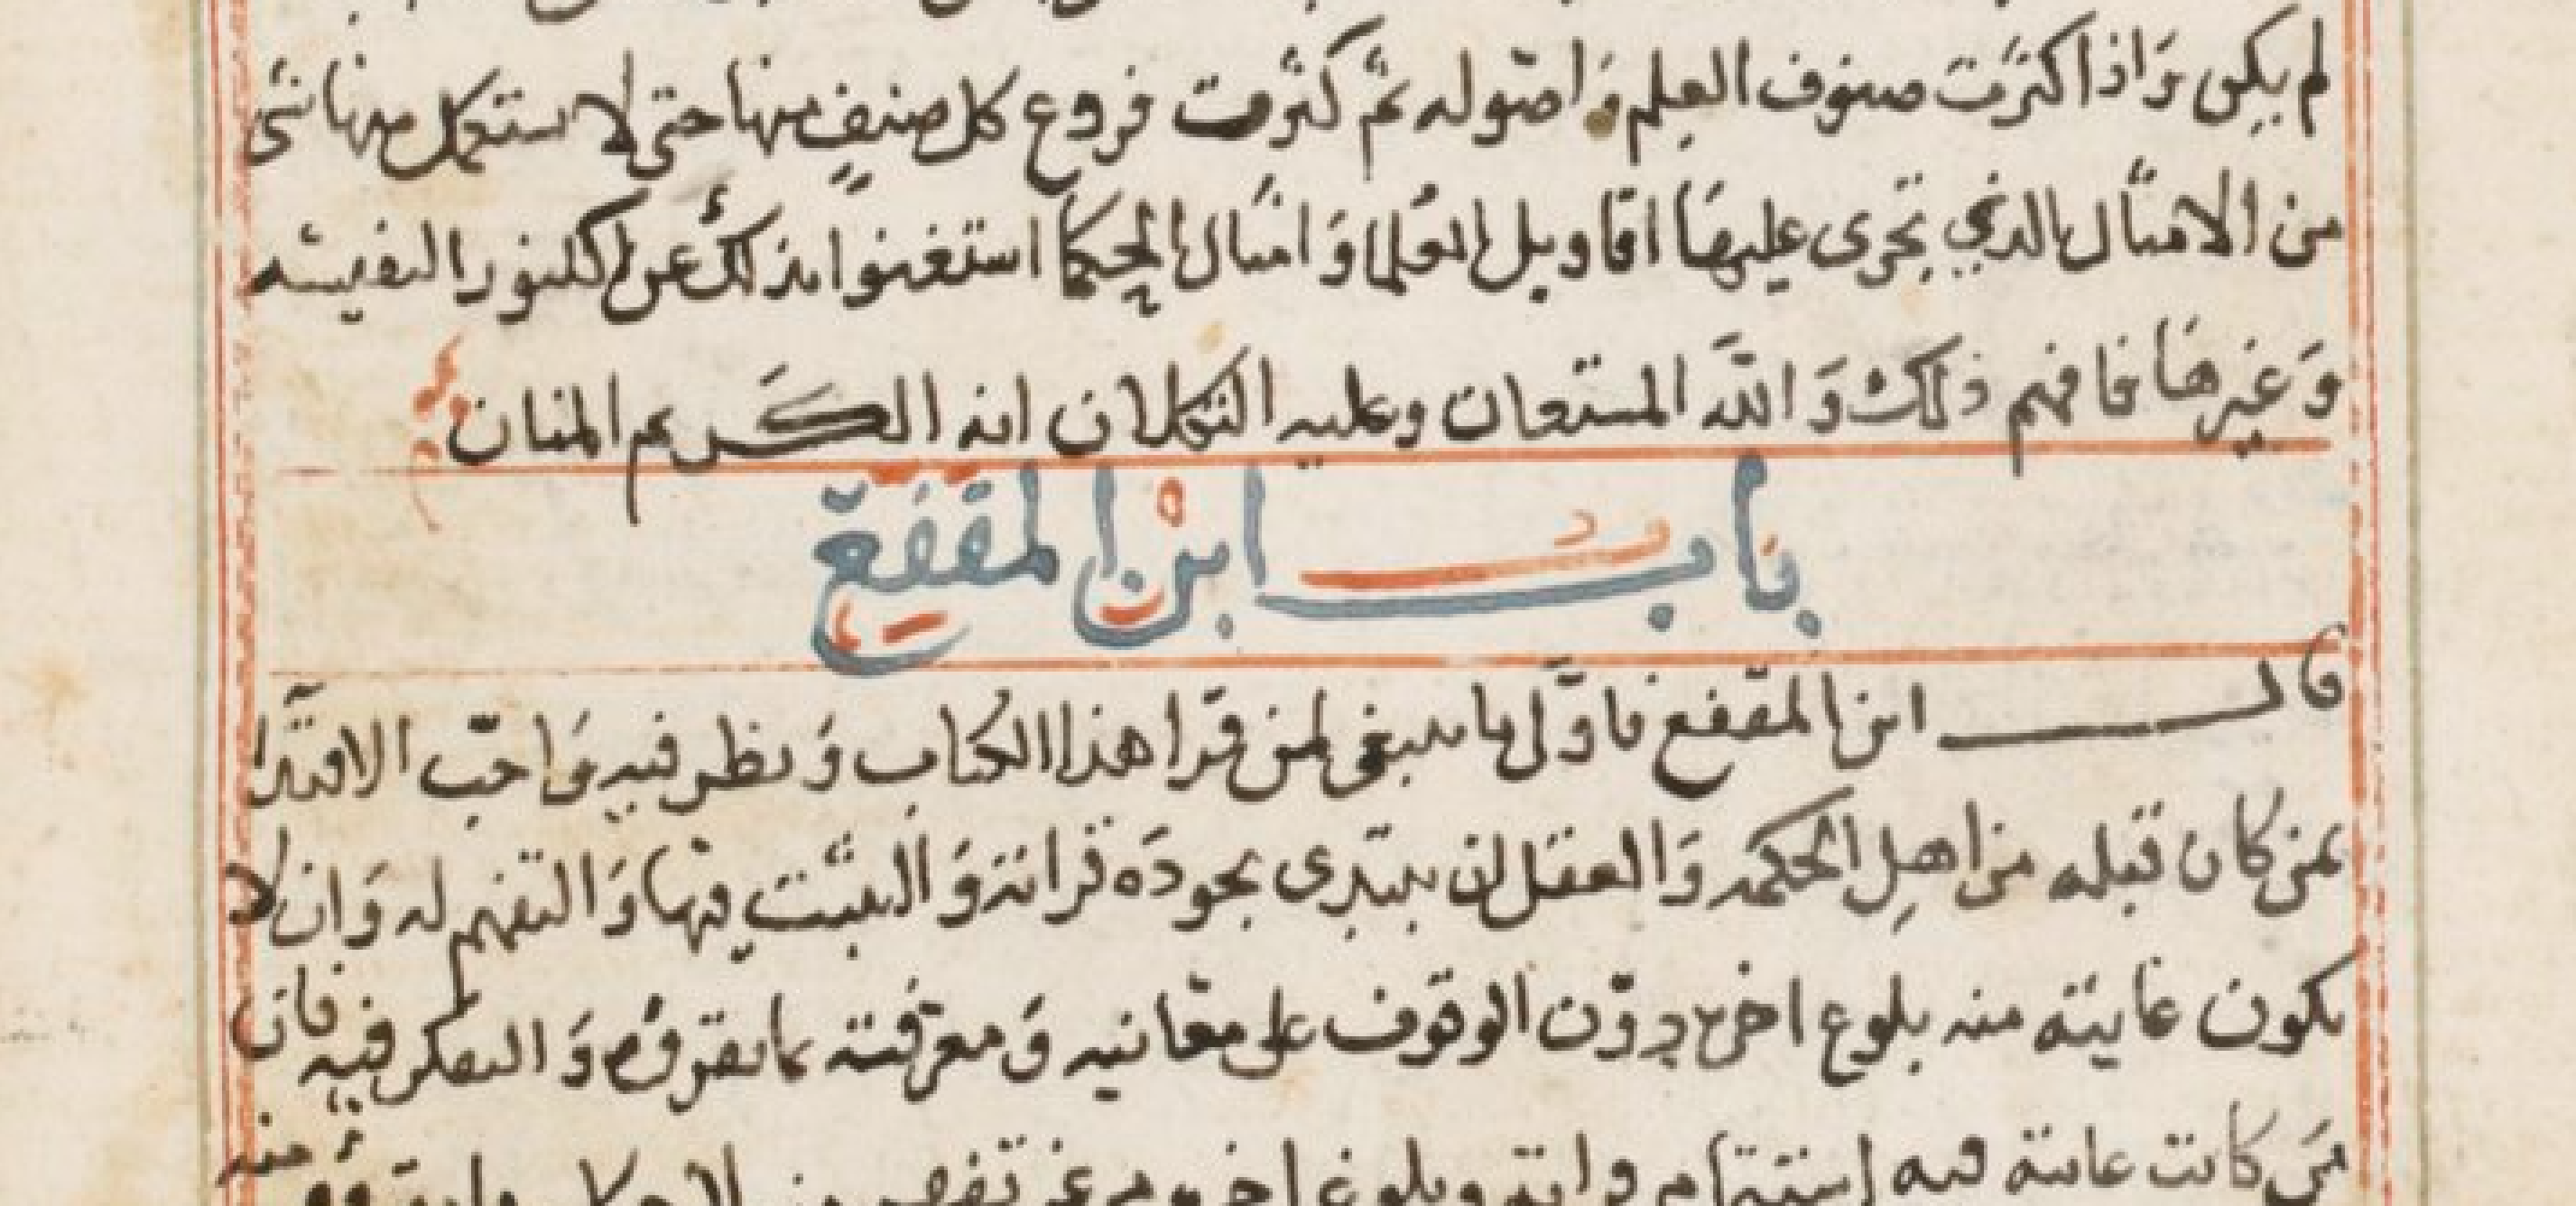 لم يكن وَاذا كثرَت صنوف العلم وَاصوله ثم كثرت فروع كل صنفٍ منها حتى لا ستكمل منها شى
من الامثال الذي تجرى عليهَا اقاويل العُلما وَامثال الحكما استغنوا بذلك عن الكنوز النفيسه
وَغيرهَا فافهم ذلك وَاللّه المستعان وعليه التكلان انه الكَريم المنان
باب ابن المقفع
قال ابن المقفع فاوّل ما ينبغى لمن قرا هذا الكتاب وَنظر فيه وَاحبّ الاقتدا
بمن كان قبله من اهل الحكمه وَالعقل ان يبتدى بجودَه قراته وَالتثبّت فيها وَالتفهم له وَان لا
يكون غايته منه بلوغ اخره دوُن الوقوف على معَانيه وَمعرفته بما يقروُه وَالتفكر فيه فان
من كانت غايته فيه استتمام قراته وبلوغ اخره من غير تفهم